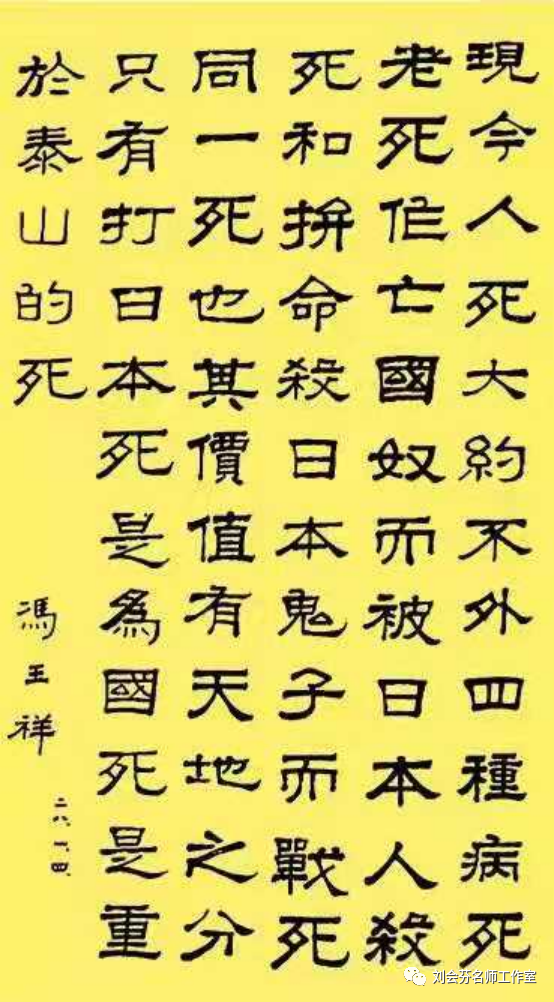 現今人死大約不外四種病死
老死作亡國奴而被日本人殺
死和拚命殺日本鬼子而戰死
同一死也其價值有天地之分
只有打日本死是為國死是重
於泰山的死
馮玉祥
二八、一、四、
刘会芬名师工作室